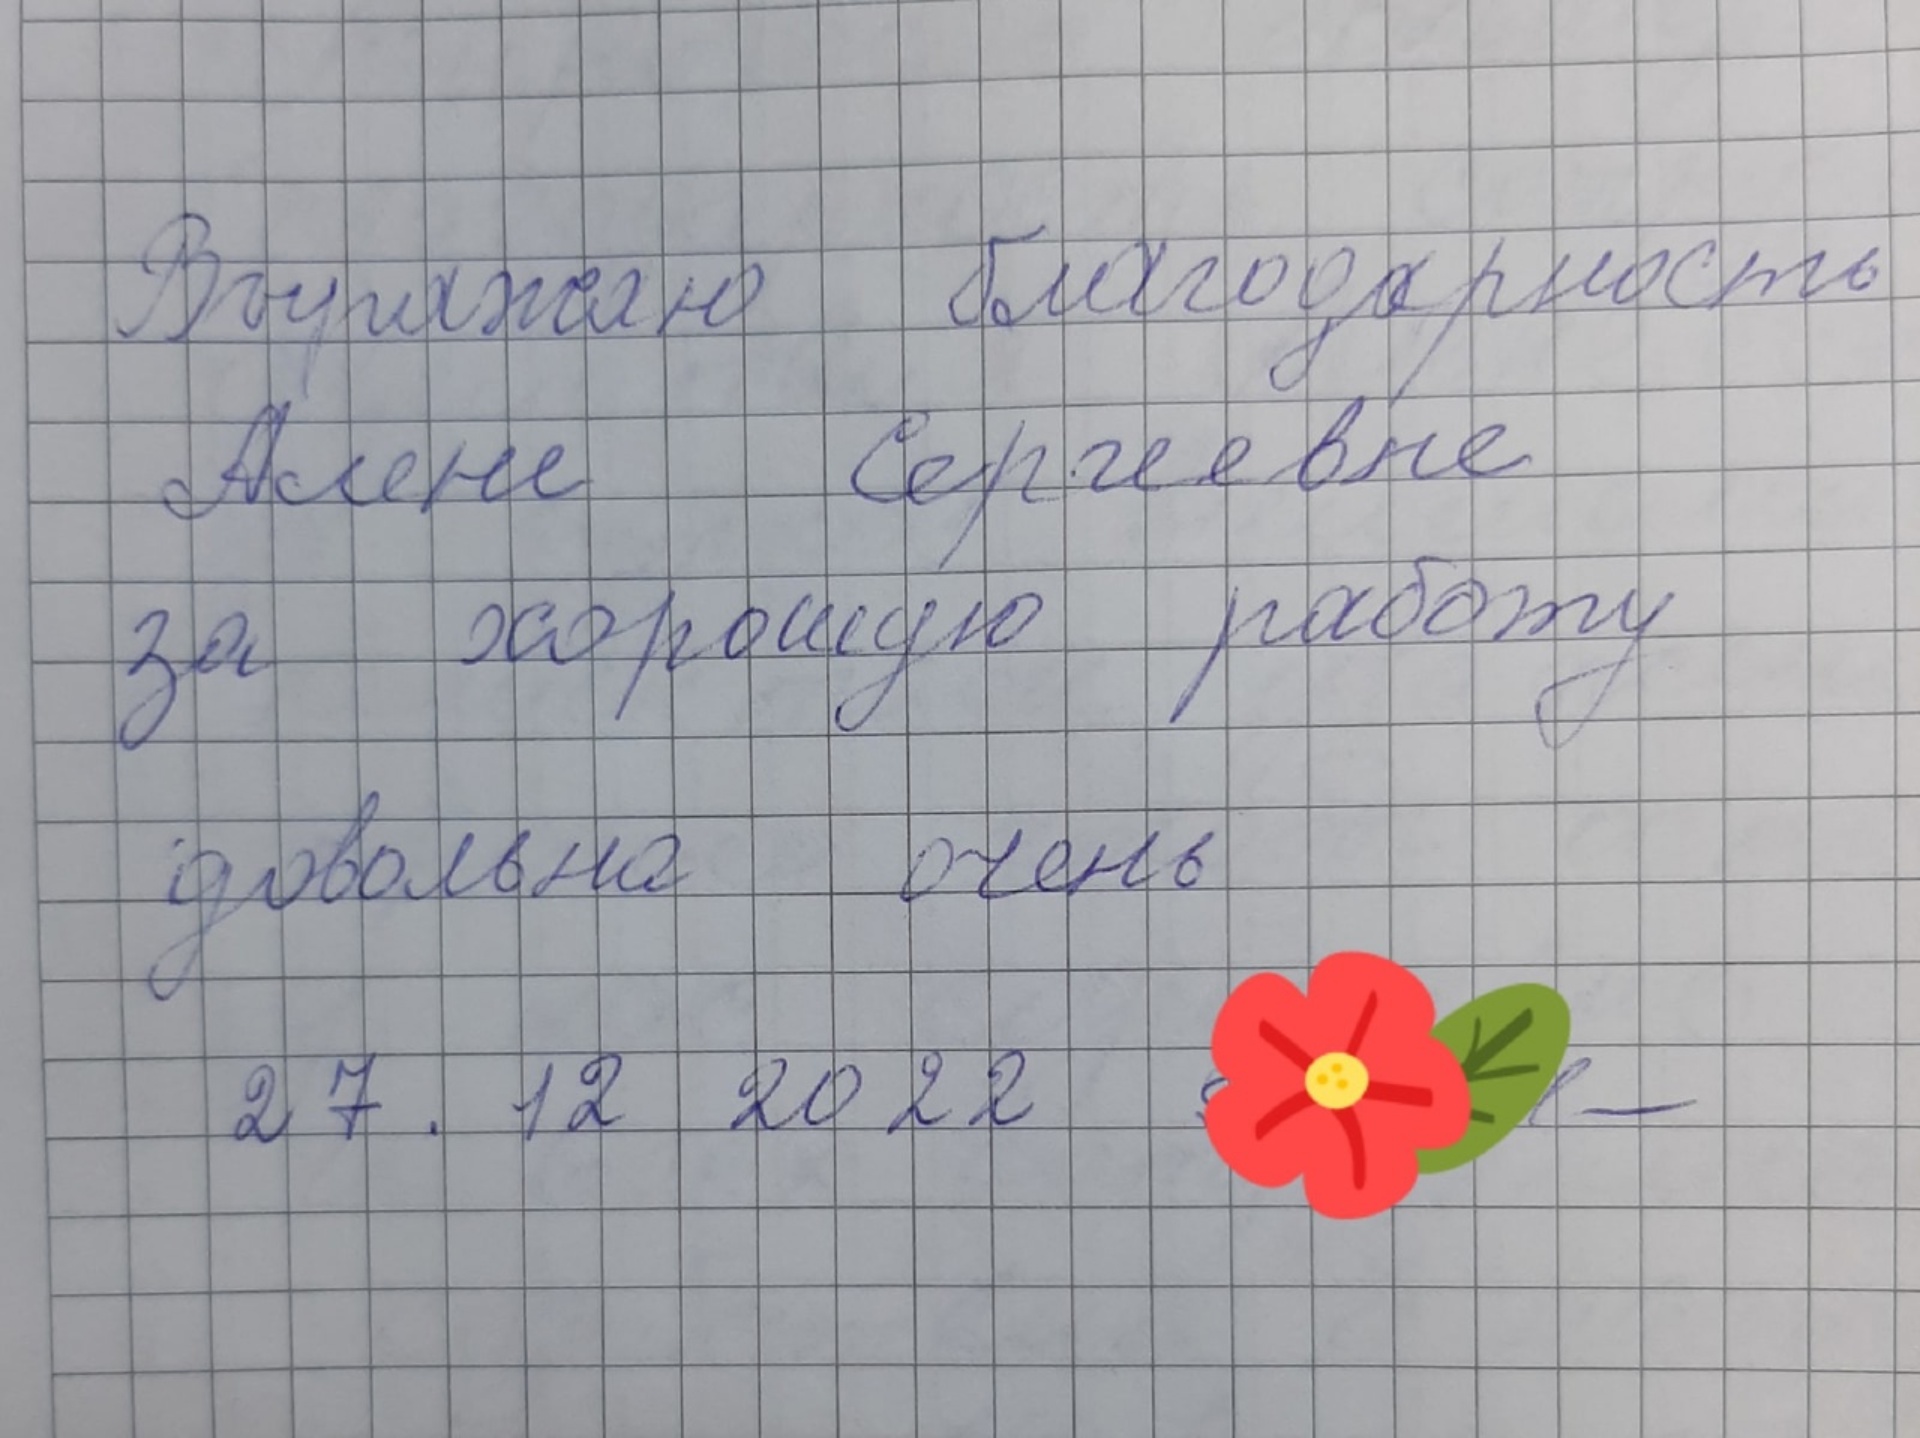 Выражаю благодарность
Алене Сергеевне
за хорошую работу
довольна очень
27. 12 2022